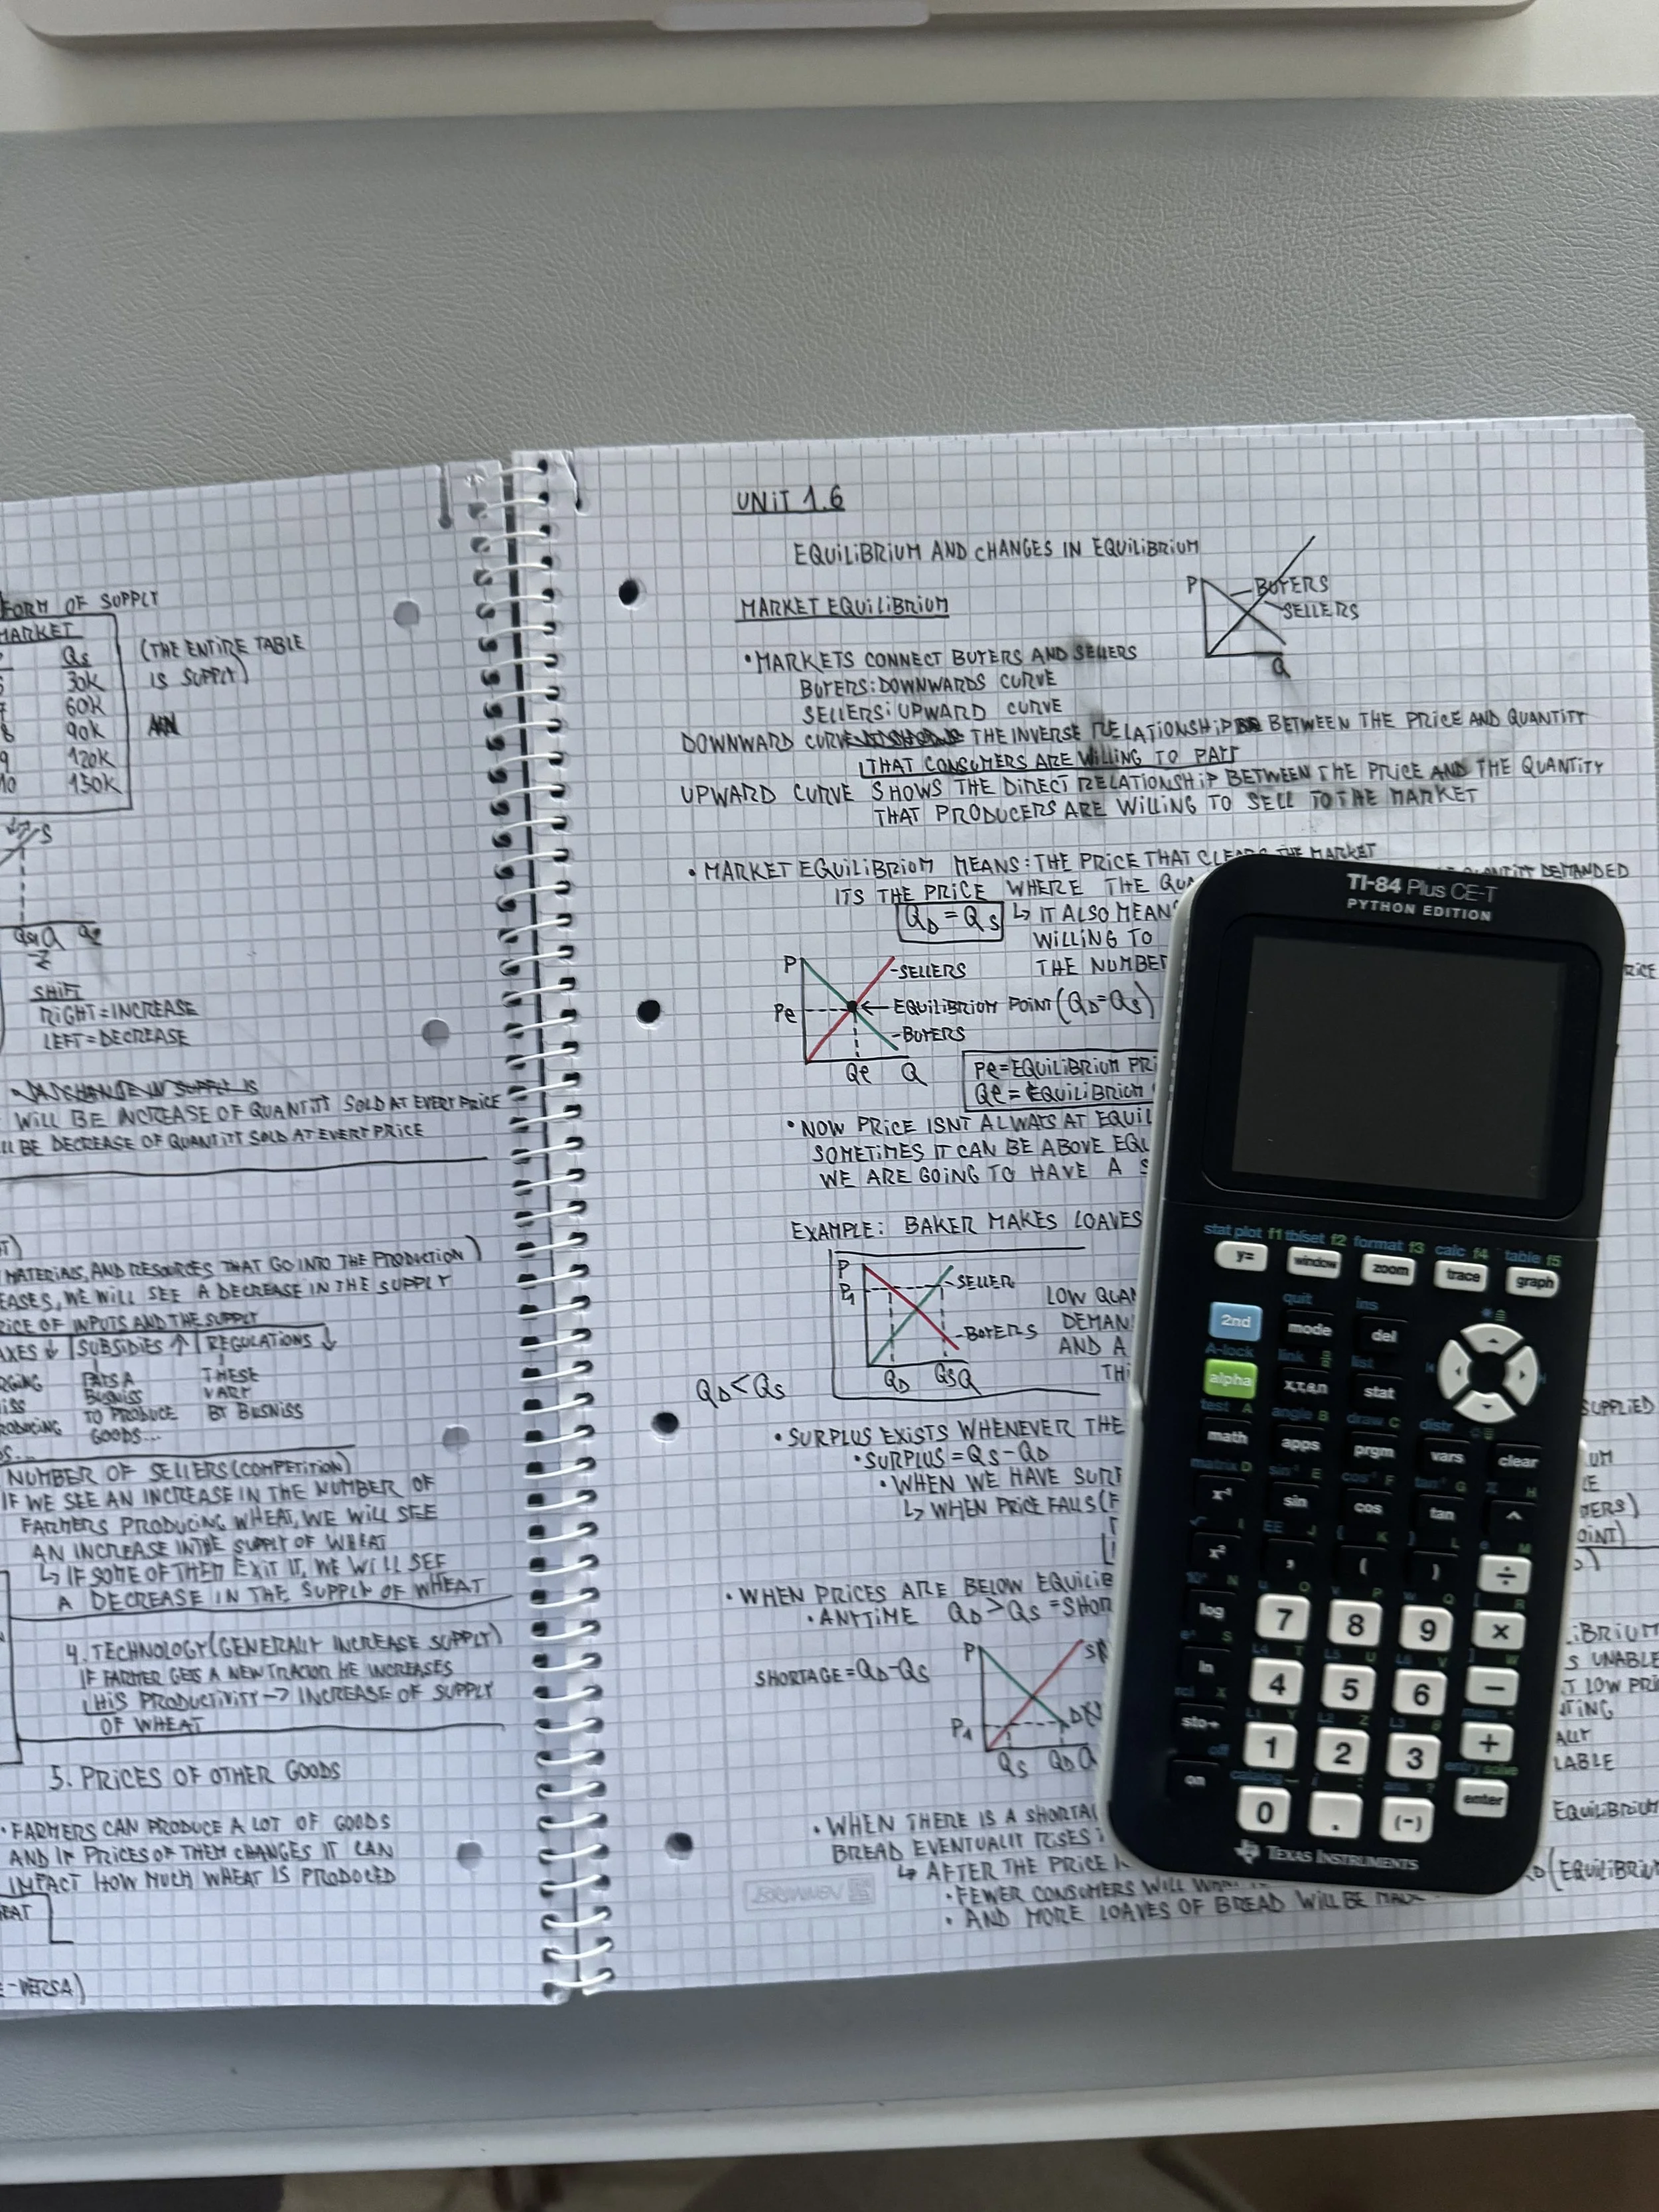 FORM OF SUPPLY
MARKET
Qs
(THE ENTIRE TABLE
IS SUPPLY)
30K
60K
8 90K
9 120K
10 150K
S
Q
SHIFT
RIGHT = INCREASE
LEFT = DECREASE
WILL BE INCREASE OF QUANTITY SOLD AT EVERY PRICE
BE DECREASE OF QUANTITY SOLD AT EVERY PRICE
MATERIALS, AND RESOURCES THAT GO INTO THE PRODUCTION)
WE WILL SEE A DECREASE IN THE SUPPLY
OF INPUTS AND THE SUPPLY
↓ SUBSIDIES ↑ REGULATIONS ↓
PAYS A THESE
BUSNISS VARY
TO PRODUCE BY BUSNISS
GOODS...
NUMBER OF SELLERS (COMPETITION)
IF WE SEE AN INCREASE IN THE NUMBER OF
FARMERS PRODUCING WHEAT, WE WILL SEE
AN INCREASE IN THE SUPPLY OF WHEAT
↳ IF SOME OF THEM EXIT IT, WE WILL SEE
A DECREASE IN THE SUPPLY OF WHEAT
4. TECHNOLOGY (GENERALLY INCREASE SUPPLY)
IF FARMER GETS A NEW TRACTOR HE INCREASES
HIS PRODUCTIVITY → INCREASE OF SUPPLY
OF WHEAT
5. PRICES OF OTHER GOODS
• FARMERS CAN PRODUCE A LOT OF GOODS
AND IF PRICES OF THEM CHANGES IT CAN
IMPACT HOW MUCH WHEAT IS PRODUCED
-VERSA)
UNIT 1.6
EQUILIBRIUM AND CHANGES IN EQUILIBRIUM
P BUYERS
SELLERS
Q
MARKET EQUILIBRIUM
• MARKETS CONNECT BUYERS AND SELLERS
BUYERS: DOWNWARDS CURVE
SELLERS: UPWARD CURVE
DOWNWARD CURVE THE INVERSE RELATIONSHIP BETWEEN THE PRICE AND QUANTITY
THAT CONSUMERS ARE WILLING TO PAY
UPWARD CURVE SHOWS THE DIRECT RELATIONSHIP BETWEEN THE PRICE AND THE QUANTITY
THAT PRODUCERS ARE WILLING TO SELL TO THE MARKET
• MARKET EQUILIBRIUM MEANS: THE PRICE THAT CLEARS THE MARKET
ITS THE PRICE WHERE THE DEMANDED
QD = QS ↳ IT ALSO
WILLING TO
THE
P -SELLERS
Pe ← EQUILIBRIUM POINT (QD = QS)
-BUYERS
Qe Q
Pe = EQUILIBRIUM
Qe = EQUILIBRIUM
• NOW PRICE ISNT ALWAYS AT
SOMETIMES IT CAN BE ABOVE
WE ARE GOING TO HAVE A
EXAMPLE: BAKER MAKES LOAVES
P -SELLER
P1
-BUYERS
QD QS Q
LOW
AND A
QD < QS
SUPPLIED
• SURPLUS EXISTS WHENEVER THE
• SURPLUS = QS - QD
• WHEN WE HAVE
↳ WHEN PRICE FALLS
• WHEN PRICES ARE BELOW
• ANYTIME QD > QS =
SHORTAGE = QD - QS
P
P1
QS QD Q
UNABLE
LOW
• WHEN THERE IS A
BREAD EVENTUALLY RISES
↳ AFTER THE PRICE
• FEWER CONSUMERS WILL
• AND MORE LOAVES OF BREAD WILL BE
BRUNNEN
TI-84 Plus CE-T
PYTHON EDITION
stat plot f1 tblset f2 format f3 calc f4 table f5
y= window zoom trace graph
quit ins
2nd mode del
A-lock link list
alpha X,T,θ,n stat
test A angle B draw C distr
math apps prgm vars clear
matrix D sin⁻¹ E cos⁻¹ F tan⁻¹ G π H
x⁻¹ sin cos tan ^
√ I EE J { K } L e M
x² , ( ) ÷
10ˣ N u O v P w Q [ R
log 7 8 9 ×
eˣ S L4 T L5 U L6 V ] W
ln 4 5 6 −
rcl X L1 Y L2 Z L3 θ mem "
sto→ 1 2 3 +
off catalog i : ans ? entry solve
on 0 . (-) enter
TEXAS INSTRUMENTS